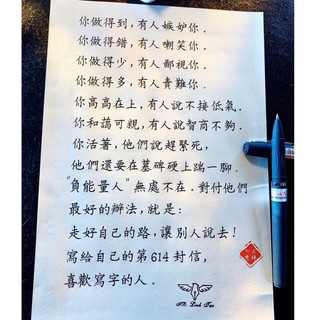 你做得到,有人嫉妒你.
你做得錯,有人嘲笑你.
你做得少,有人鄙視你.
你做得多,有人責難你.
你高高在上,有人說不接低氣.
你和藹可親,有人說智商不夠.
你活著,他們說趕緊死,
他們還要在墓碑硬上踹一腳.
"負能量人"無處不在.對付他們
最好的辦法,就是:
走好自己的路,讓別人說去!
寫給自己的第614封信,
喜歡寫字的人.